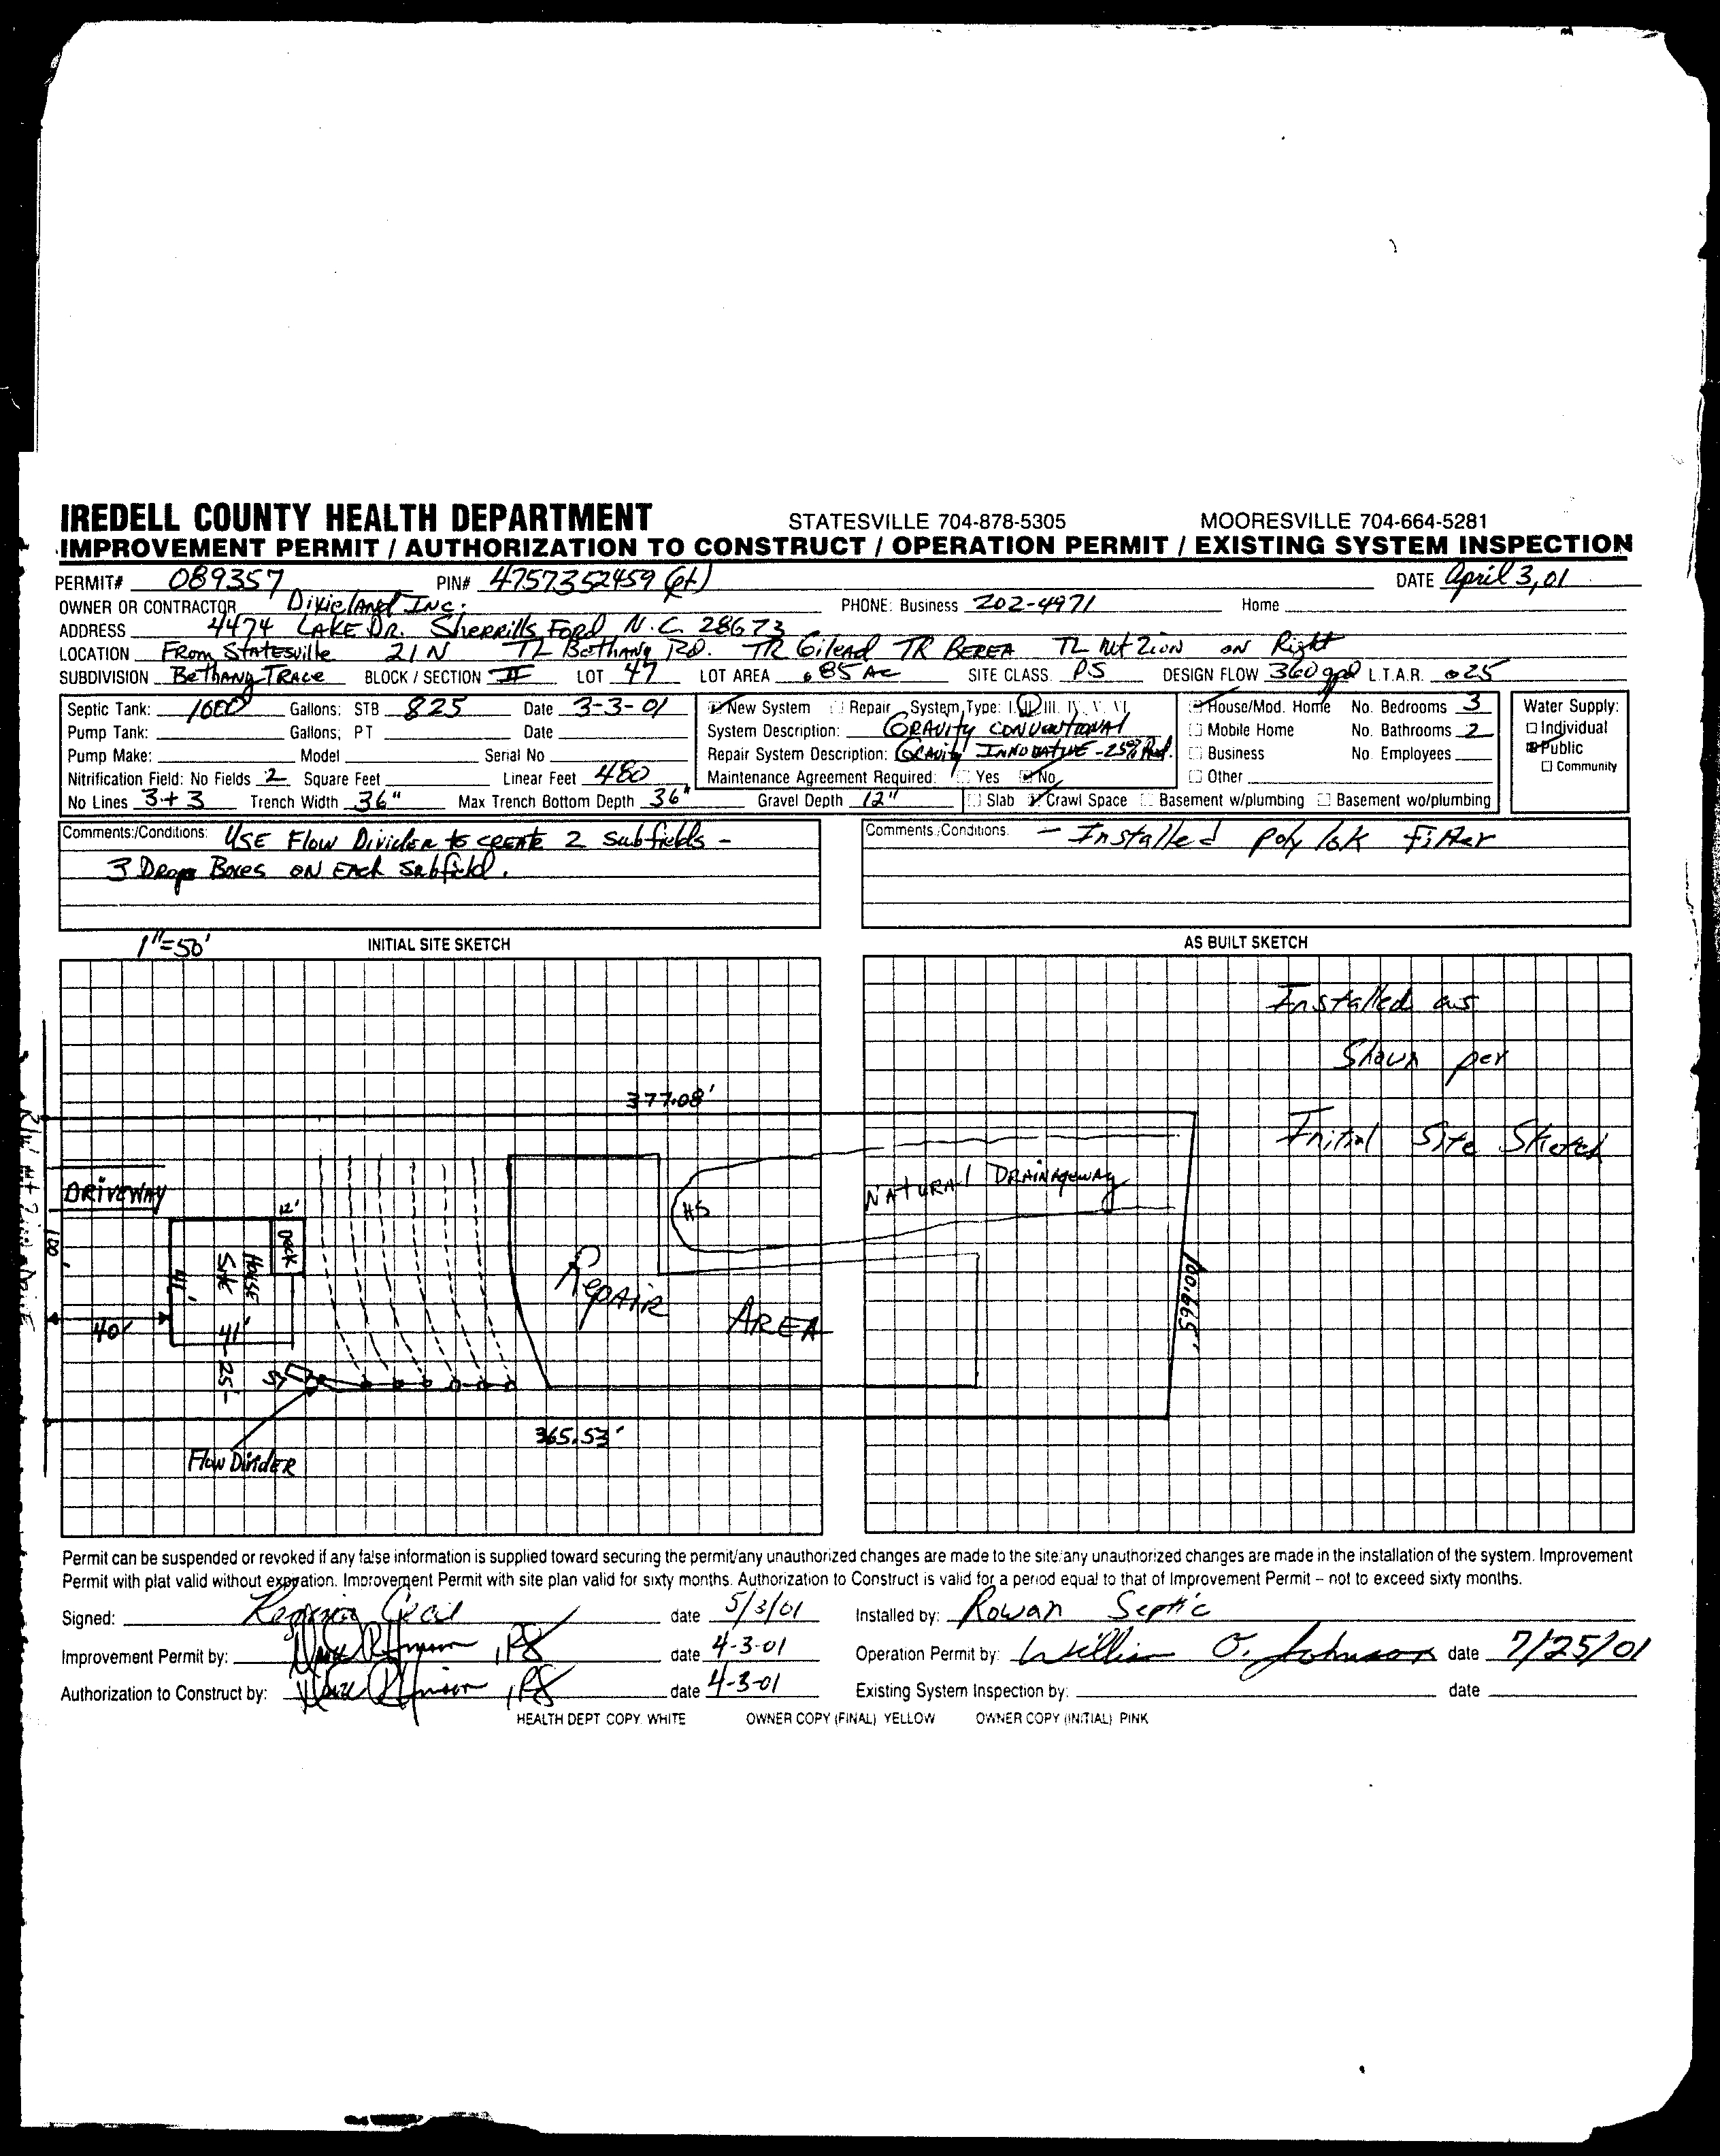 IREDELL COUNTY HEALTH DEPARTMENT STATESVILLE 704-878-5305 MOORESVILLE 704-664-5281
IMPROVEMENT PERMIT / AUTHORIZATION TO CONSTRUCT / OPERATION PERMIT / EXISTING SYSTEM INSPECTION
PERMIT# 089357 PIN# 4757352459 (pt) DATE April 3, 01
OWNER OR CONTRACTOR Dixieland Inc. PHONE: Business 202-4971 Home
ADDRESS 4474 LAKE DR. Sherrills Ford N.C. 28673
LOCATION From Statesville 21 N TL Bethany Rd. TR Gilead TR BEREA TL Mt Zion on Right
SUBDIVISION Bethany Trace BLOCK / SECTION II LOT 47 LOT AREA .85 Ac SITE CLASS. PS DESIGN FLOW 360 gpd L.T.A.R. .25
Septic Tank: 1000 Gallons: STB 825 Date 3-3-01
Pump Tank: Gallons; PT Date
Pump Make: Model Serial No
Nitrification Field: No Fields 2 Square Feet Linear Feet 480
No Lines 3+3 Trench Width 36" Max Trench Bottom Depth 36" Gravel Depth 12"
New System Repair System Type: I. II. III. IV. V. VI.
System Description: GRAVITY CONVENTIONAL
Repair System Description: Gravity INNOVATIVE -25% Red.
Maintenance Agreement Required: Yes No
Slab Crawl Space Basement w/plumbing Basement wo/plumbing
House/Mod. Home No. Bedrooms 3
Mobile Home No. Bathrooms 2
Business No Employees
Other
Water Supply:
Individual
Public
Community
Comments:/Conditions: USE Flow Divider to create 2 subfields -
3 Drop Boxes ON EACH Subfield.
Comments:/Conditions. - Installed poly lok filter
1"=50' INITIAL SITE SKETCH
AS BUILT SKETCH
Installed as
Shown per
Initial Site Sketch
377.08'
DRIVEWAY
NATURAL DRAINAGEWAY
12'
DECK
HOUSE
Site
41'
41'
40'
25'
100'
ST
Repair AREA
100.665'
365.53'
Flow Divider
Permit can be suspended or revoked if any false information is supplied toward securing the permit/any unauthorized changes are made to the site/any unauthorized changes are made in the installation of the system. Improvement
Permit with plat valid without expiration. Improvement Permit with site plan valid for sixty months. Authorization to Construct is valid for a period equal to that of Improvement Permit – not to exceed sixty months.
Signed: date 5/3/01 Installed by: Rowan Septic
Improvement Permit by: , RS date 4-3-01 Operation Permit by: William O. Johnson date 7/25/01
Authorization to Construct by: , RS date 4-3-01 Existing System Inspection by: date
HEALTH DEPT COPY. WHITE OWNER COPY (FINAL) YELLOW OWNER COPY (INITIAL) PINK